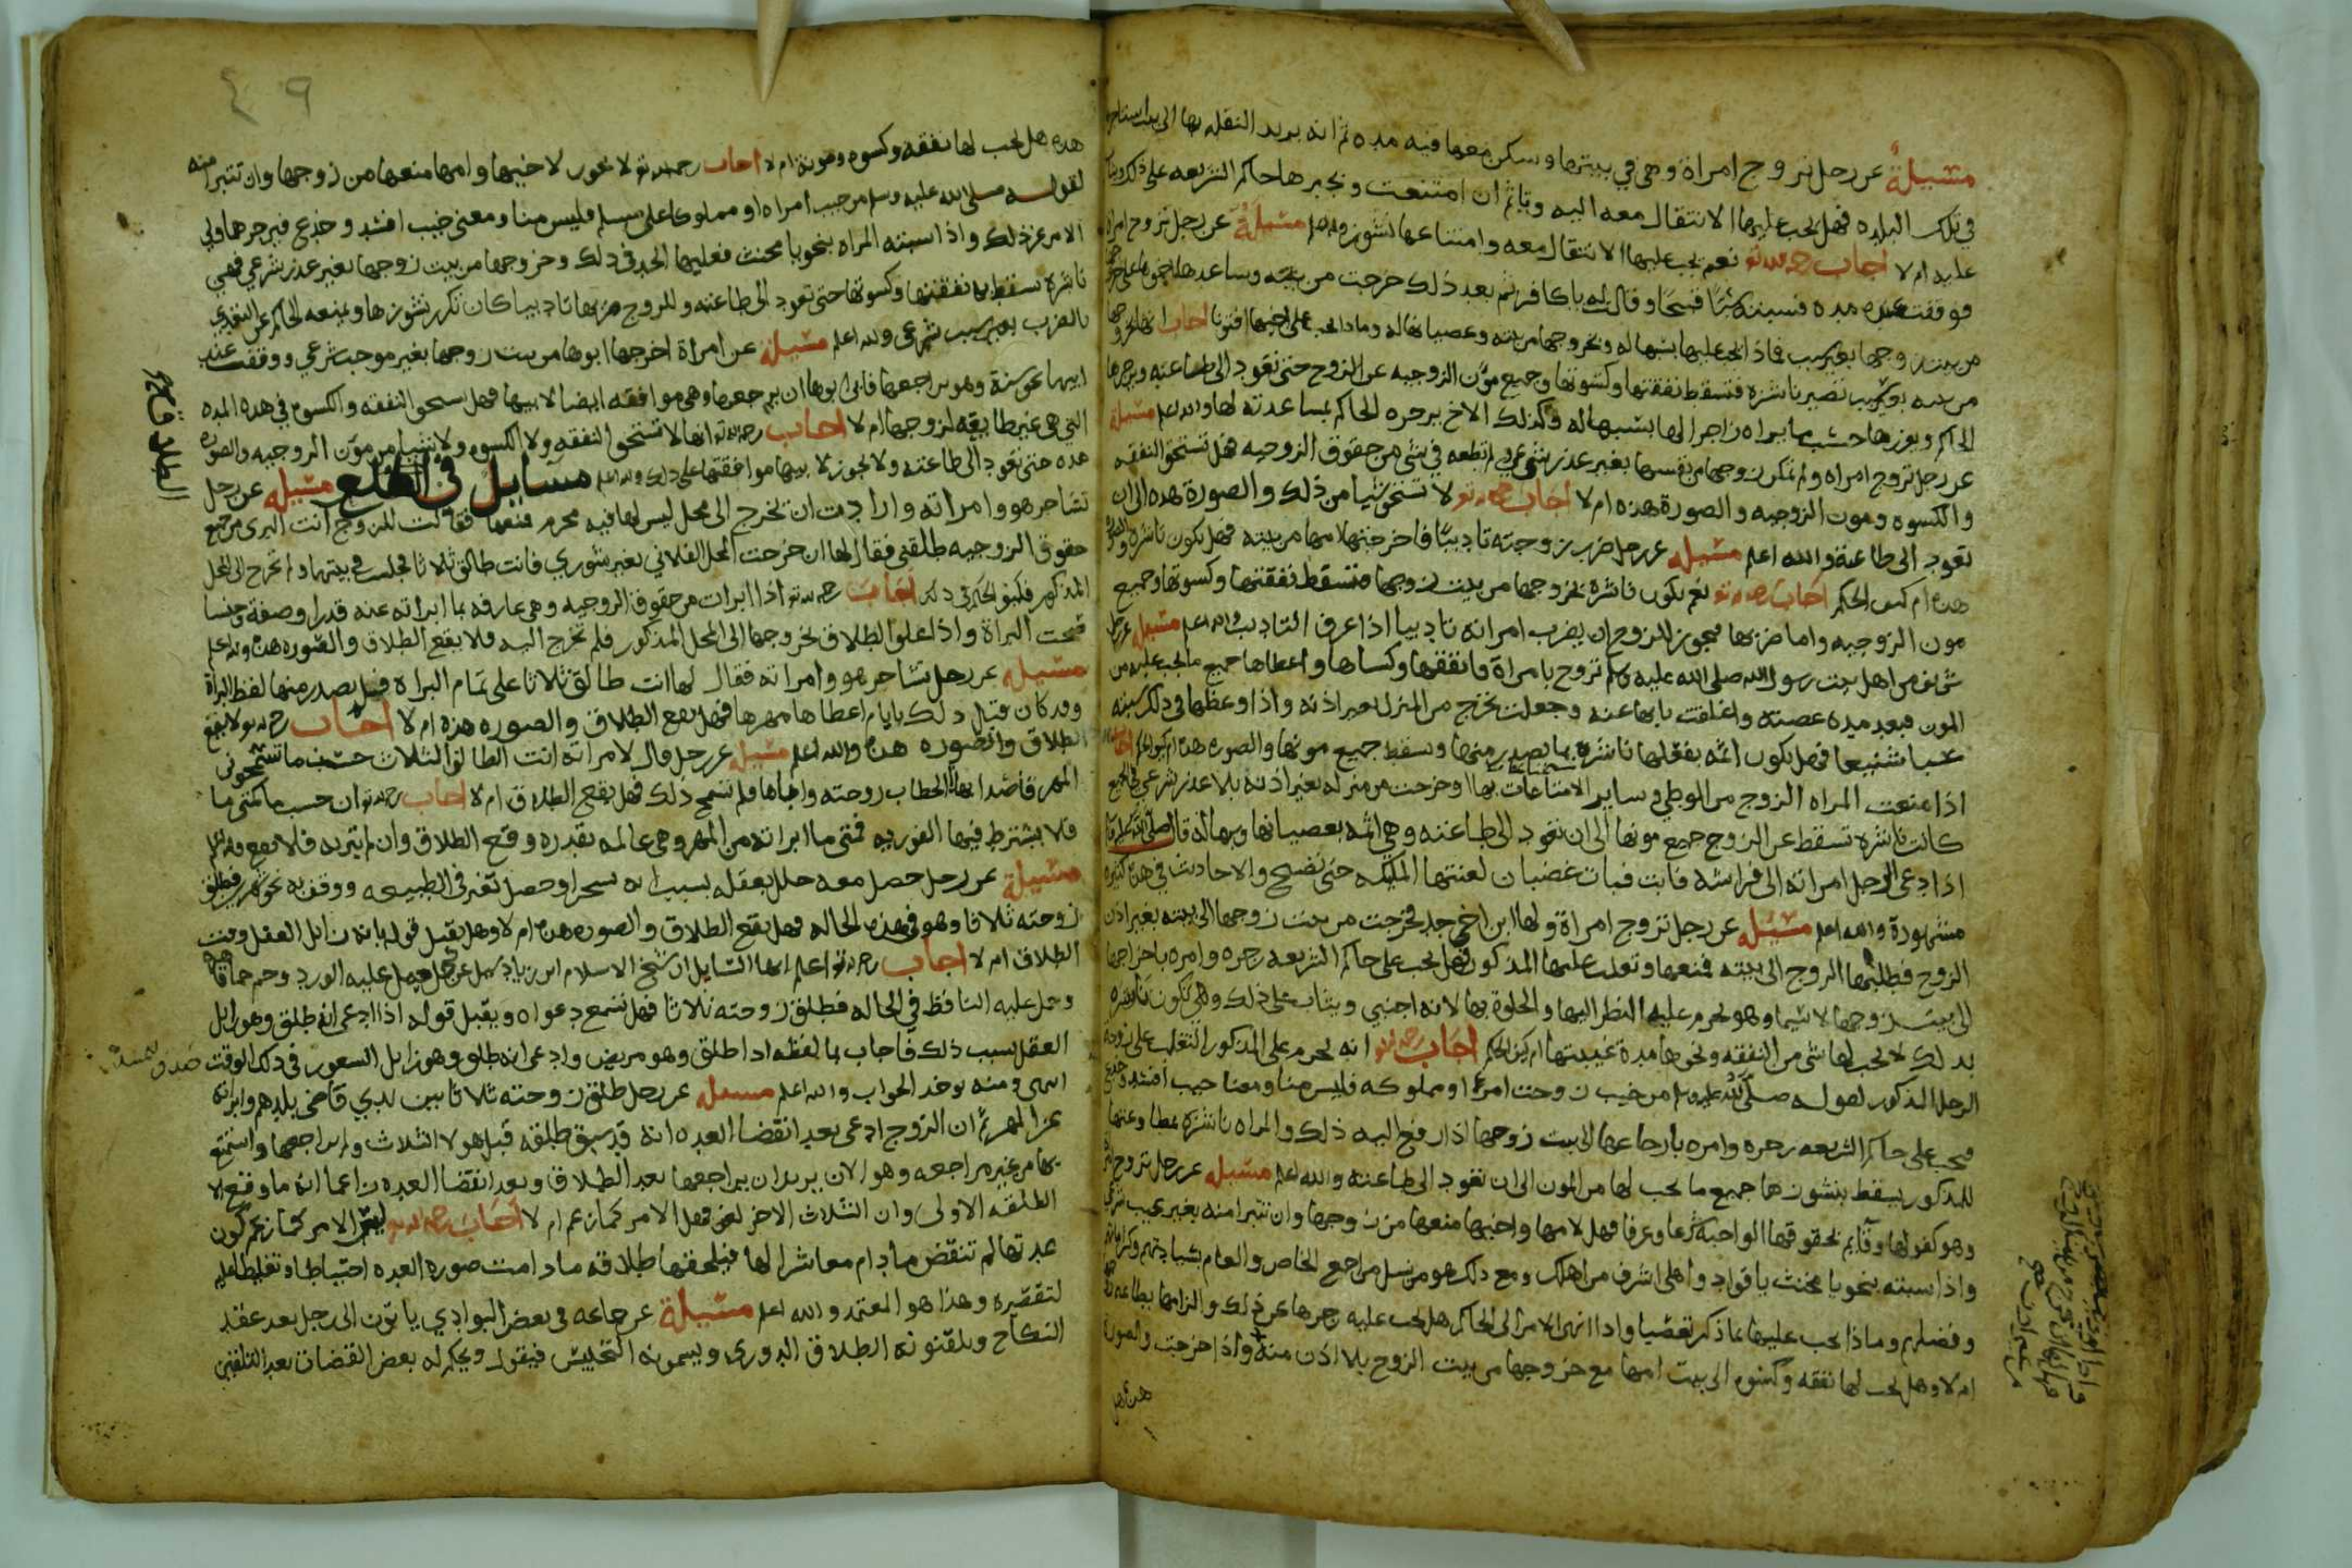 مسيلة عن رجل تزوج امراة وهي في بيتها وسكن معها فيه مده ثم انه يريد النقله بها الى بيت
في تلك البلده فهل يجب عليها الانتقال معه اليه وياثم ان امتنعت ويجبرها حاكم الشريعه على ذلك
عليه ام لا اجاب رحمه الله نعم يجب عليها الانتقال معه وامتناعها نشوز والله اعلم مسيلة عن رجل تزوج امراة
فوقفت عنده مده فسبته سبا قبيحا وقالت له يا كافر ثم بعد ذلك خرجت من بيته وساعدها اخوها على
من بيت زوجها بغير سبب فماذا يجب عليها بسبها له وبخروجها من بيته وعصيانها له وماذا يجب على اخيها افتونا اجاب
من بيته بغير سبب تصير ناشزه فتسقط نفقتها وكسوتها وجميع مون الزوجيه عن الزوج حتى تعود الى طاعته ويزجرها
الحاكم ويعزرها حسب ما يراه زاجرا لها بسبها له وكذلك الاخ يزجره الحاكم بمساعدته لها والله اعلم مسيلة
عن رجل تزوج امراه ولم تمكن زوجها من نفسها بغير عذر شرعي ولم تطعه في شي من حقوق الزوجيه هل تستحق النفقه
والكسوه ومون الزوجيه والصورة هذه ام لا اجاب رحمه الله لا تستحق شيا من ذلك والصورة هذه الى ان
تعود الى طاعته والله اعلم مسيله عن رجل ضرب زوجته تاديبا فاخرجتها امها من بيته فهل تكون ناشزه
هذه ام كيف الحكم اجاب رحمه الله نعم تكون ناشزة بخروجها من بيت زوجها فتسقط نفقتها وكسوتها وجميع
مون الزوجيه واما ضربها فيجوز للزوج ان يضرب امراته تاديبا اذا عرف التاديب والله اعلم مسيله عن رجل
شريف من اهل بيت رسول الله صلى الله عليه وسلم تزوج بامراة وانفقها وكساها واعطاها جميع ما يجب عليه من
المون فبعد مده عصته واغلقت بابها عنه وجعلت تخرج من المنزل بغير اذنه واذا وعظها في ذلك سبته
سبا شنيعا فهل تكون اثمه بفعلها ناشزة بما يصدر منها ويسقط جميع مونها والصوره هذه
اذا منعت المراه الزوج من الوطي وساير الاستمتاعات بها او خرجت من منزله بغير اذنه بلا عذر شرعي
كانت ناشزه تسقط عن الزوج جميع مونها الى ان تعود الى طاعته وهي اثمه بعصيانها وسبها له قال صلى الله عليه وسلم
اذا دعى الرجل امراته الى فراشه فابت فبات غضبان لعنتها الملايكه حتى تصبح والاحاديث في هذا كثيره
مشهورة والله اعلم مسيله عن رجل تزوج امراة ولها ابن اخي جد فخرجت من بيت زوجها الى بيته بغير اذن
الزوج فطلبها الزوج الى بيته فمنعها وتغلب عليها المذكور فهل يجب على حاكم الشريعه زجره وامره باخراجها
الى بيت زوجها لاسيما وهو يحرم عليه النظر اليها والخلوة بها لانه اجنبي ويثاب على ذلك وهل تكون ناشزه
بذلك لا يجب لها شي من النفقه ونحوها مدة غيبتها ام كيف الحكم اجاب رحمه الله انه يحرم على المذكور التغلب على زوجة
الرجل المذكور لقوله صلى الله عليه وسلم من خبب زوجت امرا او مملوكه فليس منا ومعنا خبب افسد وخدع
فيجب على حاكم الشريعه زجره وامره بارجاعها الى بيت زوجها اذا رفع اليه ذلك والمراه ناشزه
للمذكور يسقط بنشوزها جميع ما يجب لها من المون الى ان تعود الى طاعته والله اعلم مسيله عن رجل تزوج
وهو كفو لها وقايم بحقوقها الواجبة شرعا وعرفا فهل لامها واختها منعها من زوجها وان تتبرا منه بغير عيب
واذا سبته بنحو يا مخنث يا قواد واهلي اشرف من اهلك ومع ذلك هو من نسل مراجع الخاص والعام
وفضلهم وماذا يجب عليها بما ذكر تفضيا واذا انهى الامر الى الحاكم هل يجب عليه زجرها عن ذلك والزامها بطاعته
ام لا وهل يجب لها نفقه وكسوه الى بيت امها مع خروجها من بيت الزوج بلا اذن منه واذا خرجت والصورة
هذه هل
٤٩
هذه هل يجب لها نفقه وكسوه ومونة ام لا اجاب رحمه الله لا يجوز لاختها وامها منعها من زوجها وان تتبرا منه
لقوله صلى الله عليه وسلم من خبب امراه او مملوكا على مسلم فليس منا ومعنى خبب افسد وخدع فيزجرهما ولي
الامر عن ذلك واذا سبته المراه بنحو يا مخنث فعليها الحد في ذلك وخروجها من بيت زوجها بغير عذر شرعي فهي
ناشزة تسقط نفقتها وكسوتها حتى تعود الى طاعته وللزوج ضربها تاديبا كان تكرر نشوزها ويمنعه الحاكم عن التعدي
بالضرب بغير سبب شرعي والله اعلم مسيلة عن امراة اخرجها ابوها من بيت زوجها بغير موجب شرعي ووقفت عند
ابيها نحو سنة وهو يراجعها فابى ابوها ان يرجعها وهي موافقه ايضا لابيها فهل تستحق النفقه والكسوه في هذه المده
التي هي غير طايعه لزوجها ام لا اجاب رحمه الله انها لا تستحق النفقه ولا الكسوه ولا شيا من مون الزوجيه والصوره
هذه حتى تعود الى طاعته ولا يجوز لابيها موافقتها على ذلك والله اعلم مسايل في الخلع مسيله عن رجل
تشاجر هو وامراته وارادت ان تخرج الى محل ليس لها فيه محرم فمنعها فقالت للزوج انت البري من جميع
حقوق الزوجيه طلقني فقال لها ان خرجت المحل الفلاني بغير شوري فانت طالق ثلاثا فجلست في بيتها ولم تخرج الى المحل
المذكور فكيف الحكم في ذلك اجاب رحمه الله اذا ابرات من حقوق الزوجيه وهي عارفه بما ابراته عنه قدرا وصفة وجنسا
صحت البراة واذا علق الطلاق بخروجها الى المحل المذكور فلم تخرج اليه فلا يقع الطلاق والصوره هذه والله اعلم
مسيله عن رجل تشاجر هو وامراته فقال لها انت طالق ثلاثا على تمام البراه قبل يصدر منها لفظ البراة
وقد كان قبل ذلك بايام اعطاها مهرها فهل يقع الطلاق والصوره هذه ام لا اجاب رحمه الله لا يقع
الطلاق والصوره هذه والله اعلم مسيله عن رجل قال لامراته انت الطالق الثلاث حسب ما تسمحوني
المهر قاصدا بهذا الخطاب زوجته واباها فلم تسمح ذلك فهل يقع الطلاق ام لا اجاب رحمه الله ان حسب ما كمتى ما
فلا يشترط فيها الفوريه فمتى ما ابراته من المهر وهي عالمه بقدره وقع الطلاق وان لم تبريه فلا يقع والله اعلم
مسيلة عن رجل حصل معه خلل بعقله بسبب انه سحر او حصل تغير في الطبيعه ووقف به نحو شهر فطلق
زوجته ثلاثا وهو في هذه الحاله فهل يقع الطلاق والصوره هذه ام لا وهل يقبل قوله بانه زايل العقل وقت
الطلاق ام لا اجاب رحمه الله اعلم ايها السايل ان شيخ الاسلام ابن زياد سيل عن رجل حصل عليه الورد وحم حما
وحمل عليه النافظ في الحاله فطلق زوجته ثلاثا فهل تسمع دعواه ويقبل قوله اذا ادعى انه طلق وهو زايل
العقل بسبب ذلك فاجاب بما لفظه اذا طلق وهو مريض وادعى انه طلق وهو زايل الشعور في ذلك الوقت صدق بيمينه
انتهى ومنه يوخذ الجواب والله اعلم مسيله عن رجل طلق زوجته ثلاثا بين يدي قاضي بلدهم وابراته
عن المهر ثم ان الزوج ادعى بعد انقضا العده انه قد سبق طلقه قبل هولا الثلاث ولم يراجعها واستمتع
بها من غير مراجعه وهو الان يريد ان يراجعها بعد الطلاق وبعد انقضا العده زاعما انه ما وقع الا
الطلقه الاولى وان الثلاث الاخر لغو فهل الامر كما زعم ام لا اجاب رحمه الله ليس الامر كما زعم كون
عدتها لم تنقض ما دام معاشرا لها فيلحقها طلاقه ما دامت صوره العده احتياطا وتغليظا عليه
لتقصيره وهذا هو المعتمد والله اعلم مسيلة عن جماعه في بعض البوادي ياتون الى رجل بعد عقد
النكاح ويلقنونه الطلاق الدوري ويسمونه التحليس فيقول ويحكم له بعض القضات بعد التلقين